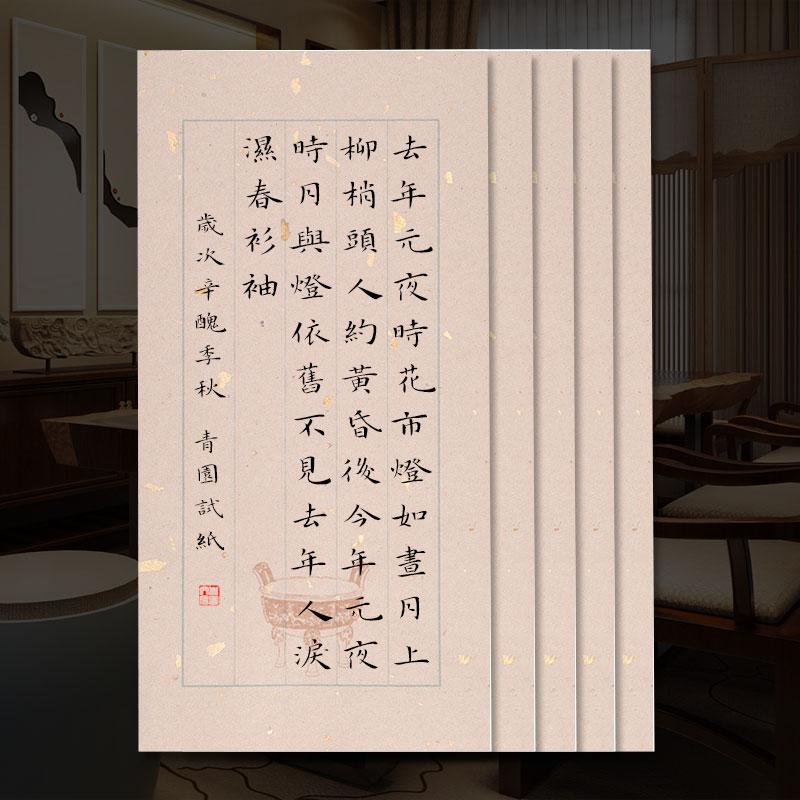 去年元夜時花市燈如晝月上
柳梢頭人約黃昏後今年元夜
時月與燈依舊不見去年人淚
濕春衫袖
歲次辛醜季秋 青園試紙